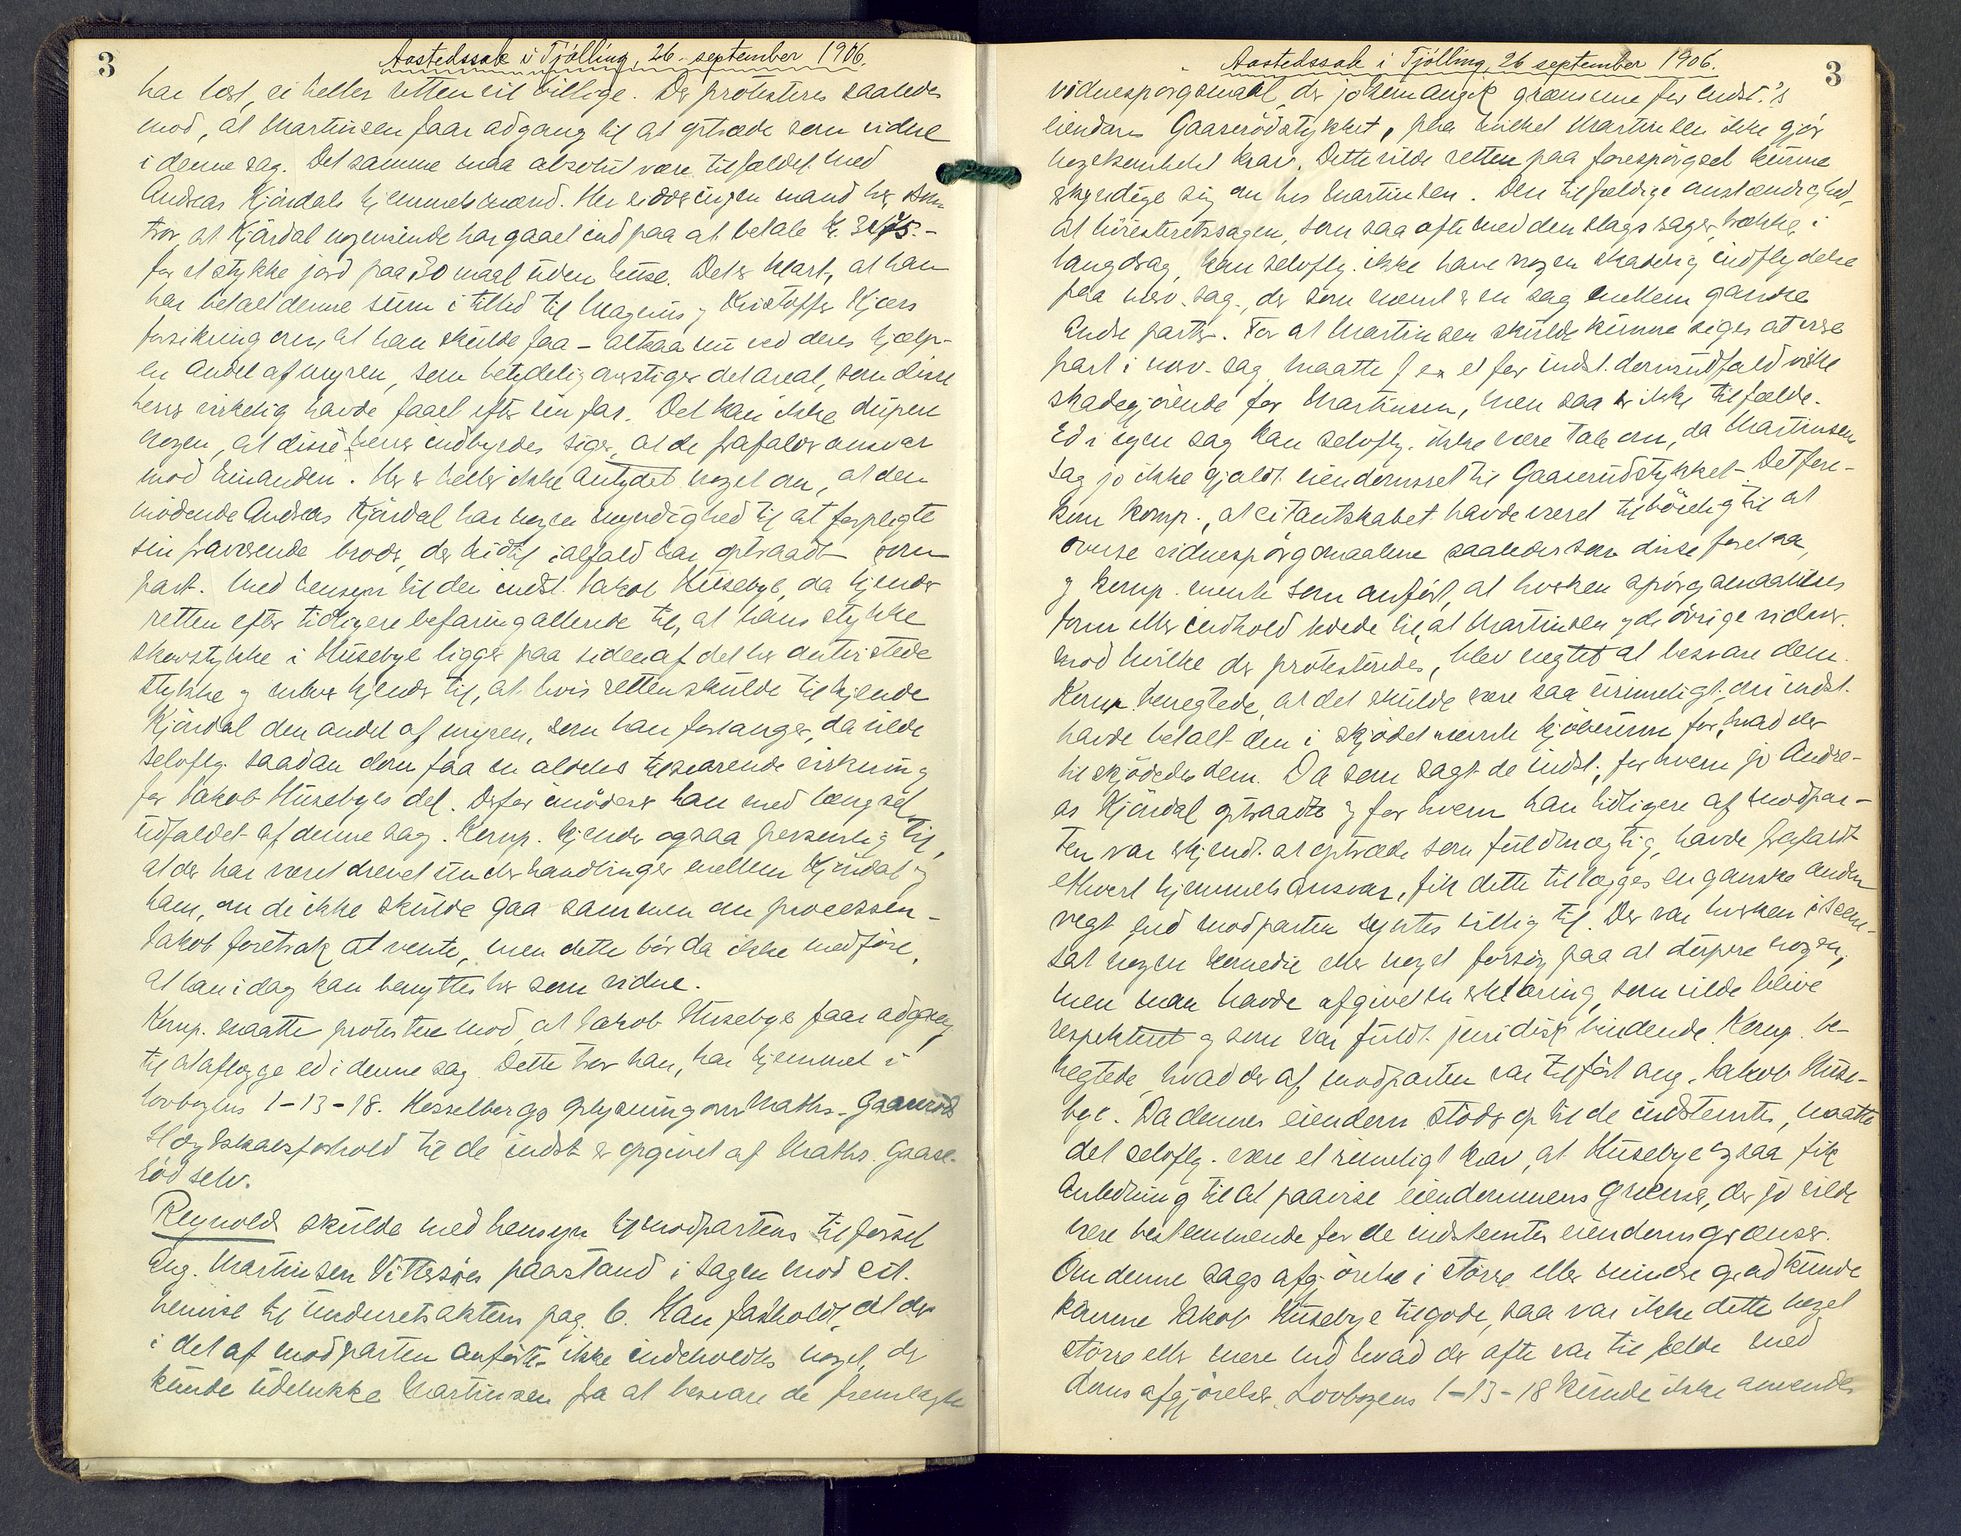 3
Aastedssak i Tjölling, 26. september 1906.
har lært, ei heller retten vil billige. Der protesteres saaledes
mod, at Martinsen faar adgang til at optræde som vidne
i denne sag. Det samme maa absolut være tilfældet med
Andreas Kjördals hjemmelsmænd. Her sidder ingen mand her som
tror, at Kjördal nogensinde har gaaet ind paa at betale kr.
for et stykke jord paa 30 maal uden huse. Det er klart, at han
har betalt denne sum i tillid til Magnus og Kristoffer Kjærs
forsikring om, at han skulde faa – altsaa nu ved deres hjælp –
en andel af myren, som betydelig overstiger det areal, som disse
herrer virkelig havde faaet efter sin far. Det kan ikke dupere
nogen, at disse herrer indbyrdes siger, at de frafalder ansvar
mod hinanden. Her er heller ikke antydet noget om, at den
mödende Andreas Kjördal har nogen myndighed til at forpligte
sin fraværende broder, der hidtil ialfald har optraadt som
part. Med hensyn til den indst. Jakob Husebye, da kjender
retten efter tidligere befaring allerede til, at hans stykke
skovstykke i Husebye ligger paa siden af det her omtvistede
stykke og enhver kjender til, at hvis retten skulde tilkjende
Kjördal den andel af myren, som han forlanger, da vilde
selvfly. saadan dom faa en aldeles tilsvarende virkning
for Jakob Husebyes del. Derfor imödeser han med længsel
udfaldet af denne sag. Komp. kjender ogsaa personlig til,
at der har været drevet underhandlinger mellem Kjördal og
ham, om de ikke skulde gaa sammen om processen –
Jakob foretrak at vente, men dette bör da ikke medföre,
at han idag kan benyttes her som vidne.
Komp. maatte protestere mod, at Jakob Husebye faar adgang
til at aflægge ed i denne sag. Dette tror han, har hjemmel i
lovbogens 1–13–18. Hesselbergs oplysning om Maths. Gaaseröds
slægtskabsforhold til de indst. er opgivet af Maths. Gaase-
röd selv.
Reynolds skulde med hensyn til modpartens tilförsel
ang. Martinsen Vittersöes paastand i sagen mod cit.
henvise til underretsaktens pag. 6. Han fastholdt, at der
i det af modparten anförte ikke indeholdtes noget, der
kunde udelukke Martinsen fra at besvare de fremlagte
3
Aastedssak i Tjölling, 26 september 1906.
vidnespörgsmaal, der jo kun angik grænserne for indst.'s
eiendom Gaaserödstykket, paa hvilket Martinsen ikke gjör
nogetsomhelst krav. Dette vilde retten paa forespörgsel kunne
forvisse sig om hos Martinsen. Den tilfældige omstændighed,
at höiesteretssagen, som saa ofte med den slags sager, trækker i
langdrag, kan selvfly. ikke have nogen skadelig indflydelse
paa nærv. sag, der som nævnt er en sag mellem ganske
andre parter. For at Martinsen skulde kunne siges at være
part i nærv. sag, maatte f. ex. et for indst. domsudfald virke
skadegjörende for Martinsen, men saa er ikke tilfælde.
Ed i egen sag kan selvfly. ikke være tale om, da Martinsens
sag jo ikke gjaldt eiendomsret til Gaaserödstykket. Det fore-
kom komp., at citantskabet havde været tilböielig til at
overse vidnespörgsmaalene saaledes som disse forelaa,
og komp. mente som anfört, at hverken spörgsmaalenes
form eller indhold ledede til, at Martinsen og de övrige vidner,
mod hvilke der protesteredes, blev nægtet at besvare dem.
Komp. benegtede, at det skulde være saa urimeligt, om indst.
havde betalt den i skjödet nævnte kjöbesum for, hvad der
tilskjödedes dem. Da som sagt de indst., for hvem jo Andre-
as Kjördal optraadte og for hvem han tidligere af modpar-
ten var erkjendt at optræde som fuldmægtig, havde frafaldt
ethvert hjemmelsansvar, fik dette tillægges en ganske anden
vegt end modparten syntes villig til. Der var hverken iscene-
sat nogen komedie eller noget forsög paa at dupere nogen,
men man havde afgivet en erklæring, som vilde blive
respekteret og som var fuldt juridisk bindende. Komp. be-
negtede, hvad der af modparten var tilfört ang. Jakob Huse-
bye. Da dennes eiendom stöder op til de indstevnte, maatte
det selvfly. være et rimeligt krav, at Husebye ogsaa fik
anledning til at paavise eiendommens grænse, der jo vilde
være bestemmende for de indstevntes eiendomsgrænser.
Om denne sags afgjörelse i större eller mindre grad kunde
komme Jakob Husebye tilgode, saa var ikke dette noget
större eller mere end hvad der ofte var tilfælde med
doms afgjörelser. Lovbogens 1–13–18 kunde ikke anvendes